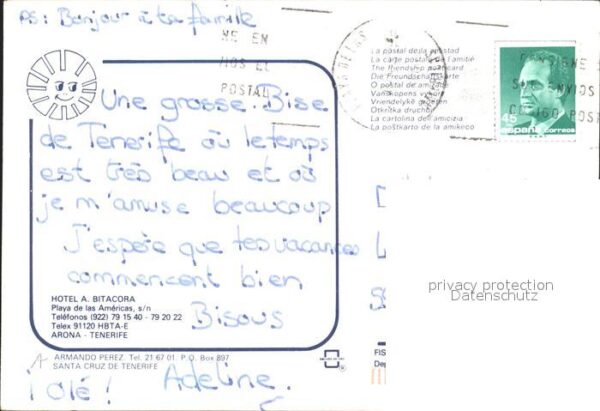 PS: Bonjour à ta famille
Une grosse Bise
de Tenerife où le temps
est très beau et où
je m'amuse beaucoup
J'espère que tes vacances
commencent bien
Bisous
Adeline.
¡Olé!
HOTEL A. BITACORA
Playa de las Américas, s/n
Teléfonos (922) 79 15 40 - 79 20 22
Telex 91120 HBTA-E
ARONA - TENERIFE
ARMANDO PEREZ Tel. 21 67 01 P.O. Box 897
SANTA CRUZ DE TENERIFE
NE EN
POSTAL
La postal de la amistad
La carte postale de l'amitié
The friendship postcard
Die Freundschaftskarte
O postal de
Vanskapens
Vriendelyke groeten
Otkritka druchbi
La cartolina dell'amicizia
La poŝtkarto de la amikeco
45
españa correos
privacy protection
Datenschutz
FIS
De